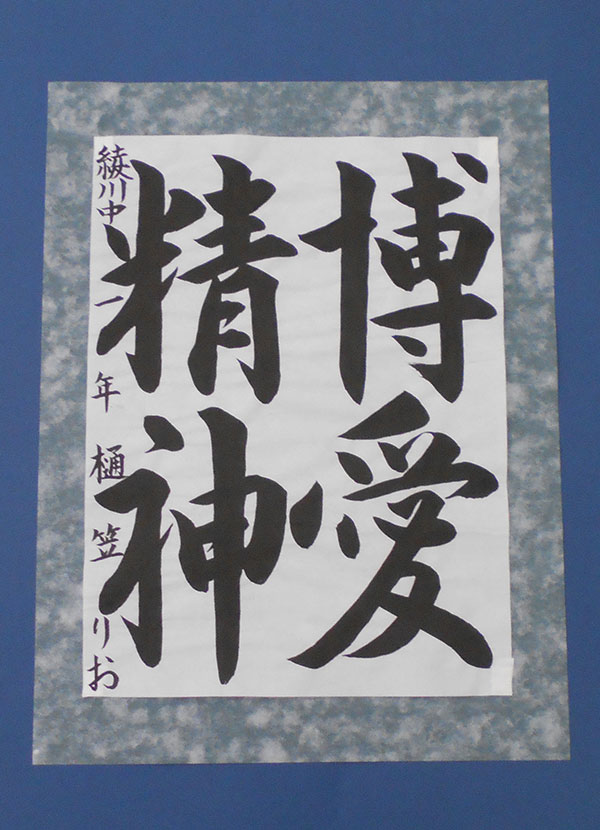 博愛
精神
綾川中一年樋笠りお